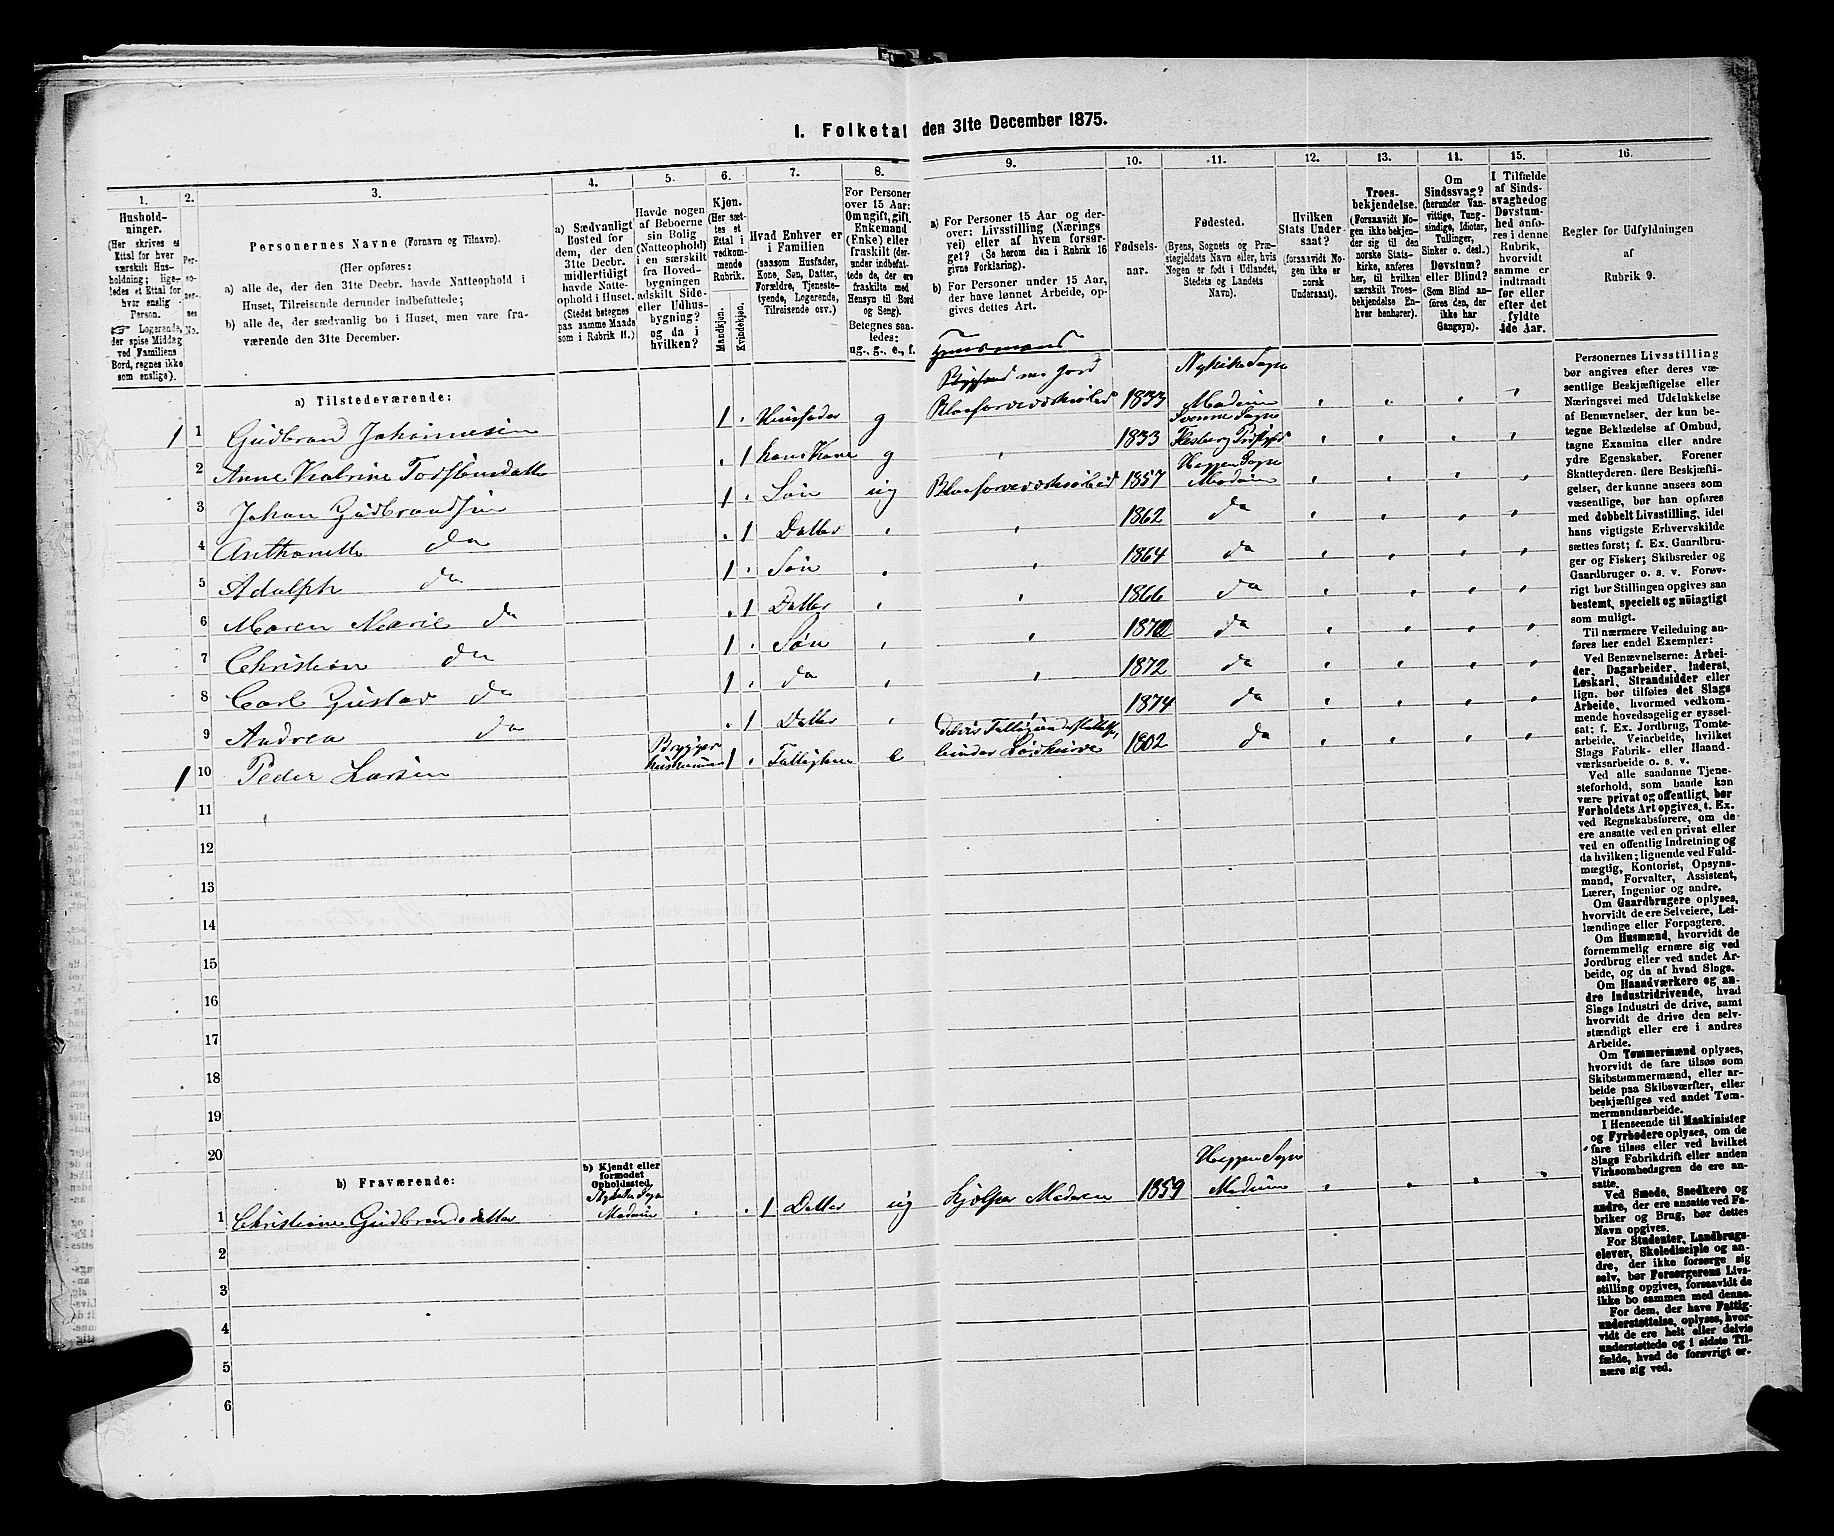 I. Folketal den 31te December 1875.
1.
2.
3.
4.
5.
6.
7.
8.
9.
10.
11.
12.
13.
14.
15.
16.
Hushold-
ninger.
(Her skrives et
Ettal for hver
særskilt Hus-
holdning; lige-
ledes et Ettal for
hver enslig
Person.
☞ Logerende,
der spise Middag
ved Familiens
Bord, regnes ikke
som enslige).
Per-
so-
ner-
nes
No.
Personernes Navne (Fornavn og Tilnavn).
(Her opføres:
a) alle de, der den 31te Decbr. havde Natteophold i
Huset, Tilreisende derunder indbefattede;
b) alle de, der sædvanlig bo i Huset, men vare fra-
værende den 31te December.
a) Sædvanligt
Bosted for
dem, der den
31te Decbr.
midlertidigt
havde Natte-
ophold i Huset.
(Stedet betegnes
paa samme Maade
som i Rubrik 11.)
Havde nogen
af Beboerne
sin Bolig
(Natteophold)
i en særskilt
fra Hoved-
bygningen
adskilt Side-
eller Udhus-
bygning?
og da i
hvilken?
Kjøn.
(Her sæt-
tes et
Ettal i
vedkom-
mende
Rubrik.
Mandkjøn.
Kvindekjøn.
Hvad Enhver er
i Familien
(saasom Husfader,
Kone, Søn, Datter,
Forældre, Tjeneste-
tyende, Logerende,
Tilreisende osv.)
For Personer
over 15 Aar:
Om ugift, gift,
Enkemand
(Enke) eller
fraskilt (der-
under indbefat-
tede de, der ere
fraskilte med
Hensyn til Bord
og Seng).
Betegnes saa-
ledes:
ug., g., e., f.
a) For Personer 15 Aar og der-
over: Livsstilling (Nærings
vei) eller af hvem forsør-
get? (Se herom den i Rubrik 16
givne Forklaring).
b) For Personer under 15 Aar,
der have lønnet Arbeide, op-
gives dettes Art.
Fødsels-
aar.
Fødested.
(Byens, Sognets og Præ-
stegjeldets Navn eller, hvis
Nogen er født i Udlandet,
Stedets og Landets
Navn).
Hvilken
Stats Under-
saat?
(forsaavidt No-
gen ikke er
norsk
Undersaat).
Troes-
bekjendelse.
(Forsaavidt No-
gen ikke bekjen-
der sig til den
norske Stats-
kirke, anføres
her, til hvilken
særskilt Troes-
bekjendelse En-
hver henhører).
Om
Sindssvag?
(herunder Van-
vittige, Tung-
sindige, Idiotar,
Tullinger,
Sinker o. desl.)
Døvstum?
eller Blind?
(Som Blind an-
føres den, der
ikke har
Gangsyn).
I Tilfælde
af Sinds-
svaghed og
Døvstum-
hed anfø-
res i denne
Rubrik,
hvorvidt
samme er
indtraadt
før eller
efter det
fyldte
4de Aar.
Regler for Udfyldningen
af
Rubrik 9.
a) Tilstedeværende:
1 1 Gudbrand Johannesen 1 Husfader g Blaafarveværksarbeid 1833 Nykirke Sogn Modum
2 Anne Katrine Torstensdatter 1 hans Kone g 1833 Svenne Sogn Flesberg
3 Johan Gudbrandsen 1 Søn ug Blaafarveværksarbeid 1857 Heggen Sogn Modum
4 Anthonette do 1 Datter 1862 do
5 Adolph do 1 Søn 1864 do
6 Maren Marie do 1 Datter 1866 do
7 Christian do 1 Søn 1870 do
8 Carl Gustav do 1 do 1872 do
9 Andrea do 1 Datter 1874 do
1 10 Peder Larsen 1 e 1802 do
11
12
13
14
15
16
17
18
19
20
b) Fraværende:
b) Kjendt eller
formodet
Opholdssted.
1 Christiane Gudbrandsdatter Nykirke Sogn Modum 1 Datter ug hjælper Moderen 1859 Heggen Sogn Modum
2
3
4
5
6
Personernes Livsstilling
bør angives efter deres væ-
sentlige Beskjæftigelse eller
Næringsvei med Udelukkelse
af Benævnelser, der kun be-
tegne Beklædelse af Ombud,
tagne Examina eller andre
ydre Egenskaber. Forener
Skatteyderen flere Beskjæfti-
gelser, der kunne ansees som
væsentlige, bør han opføres
med dobbelt Livsstilling, idet
hans vigtigste Erhvervskilde
sættes først; f. Ex. Gaardbru-
ger og Fisker; Skibsreder og
Gaardbruger o. s. v. Forøv-
rigt bør Stillingen opgives saa
bestemt, specielt og nöiagtigt
som muligt.
Til nærmere Veiledning an-
føres her endel Exempler:
Ved Benævnelserne: Arbei-
der, Dagarbeider, Inderst,
Løskarl, Strandsidder eller
lign. bør tilføies det Slags
Arbeide, hvormed vedkom-
mende hovedsagelig er syssel-
sat; f. Ex. Jordbrug, Tomte-
arbeide, Veiarbeide, hvilket
Slags Fabrik- eller Haand-
værksarbeide o. s. v.
Ved alle saadanne Tjene-
steforhold, som baade kan
være privat og offentligt, bør
Forholdets Art opgives, t. Ex.
ved Regnskabsførere, om de
ere ansatte ved en privat eller
ved en offentlig Indretning og
da hvilken; lignende ved Fuld-
mægtig, Kontorist, Opsyns-
mand, Forvalter, Assistent,
Lærer, Ingeniør og andre.
Om Gaardbrugere oplyses,
hvorvidt de ere Selveiere, Lei-
lændinge eller Forpagtere.
Om Husmænd, hvorvidt de
fornemmelig ernære sig ved
Jordbrug eller ved andet Ar-
beide, og da af hvad Slags.
Om Haandværkere og an-
dre Industridrivende, hvad
Slags Industri de drive, samt
hvorvidt de drive den selv-
stændigt eller ere i andres
Arbeide.
Om Tømmermænd oplyses,
hvorvidt de fare tilsøs som
Skibstømmermænd, eller ar-
beide paa Skibsværfter, eller
beskjæftiges ved andet Tøm-
mermandsarbeide.
I Henseende til Maskinister
og Fyrbødere oplyses, om de
fare tilsøs eller ved hvilket
Slags Fabrikdrift eller anden
Virksomhedsgren de ere an-
satte.
Ved Smede, Snedkere og
andre, der ere ansatte ved Fa-
briker og Brug, bør dettes
Navn opgives.
For Studenter, Landbrugs-
elever, Skoledisciple og an-
dre, der ikke forsørge sig
selv, bør Forsørgerens Livs-
stilling opgives, forsaavidt de
ikke bo sammen med denne.
For dem, der have Fattig-
understøttelse, oplyses, hvor-
vidt de ere helt eller delvis
understøttede og i sidste Til-
fælde, hvad de forøvrigt er-
nære sig ved.